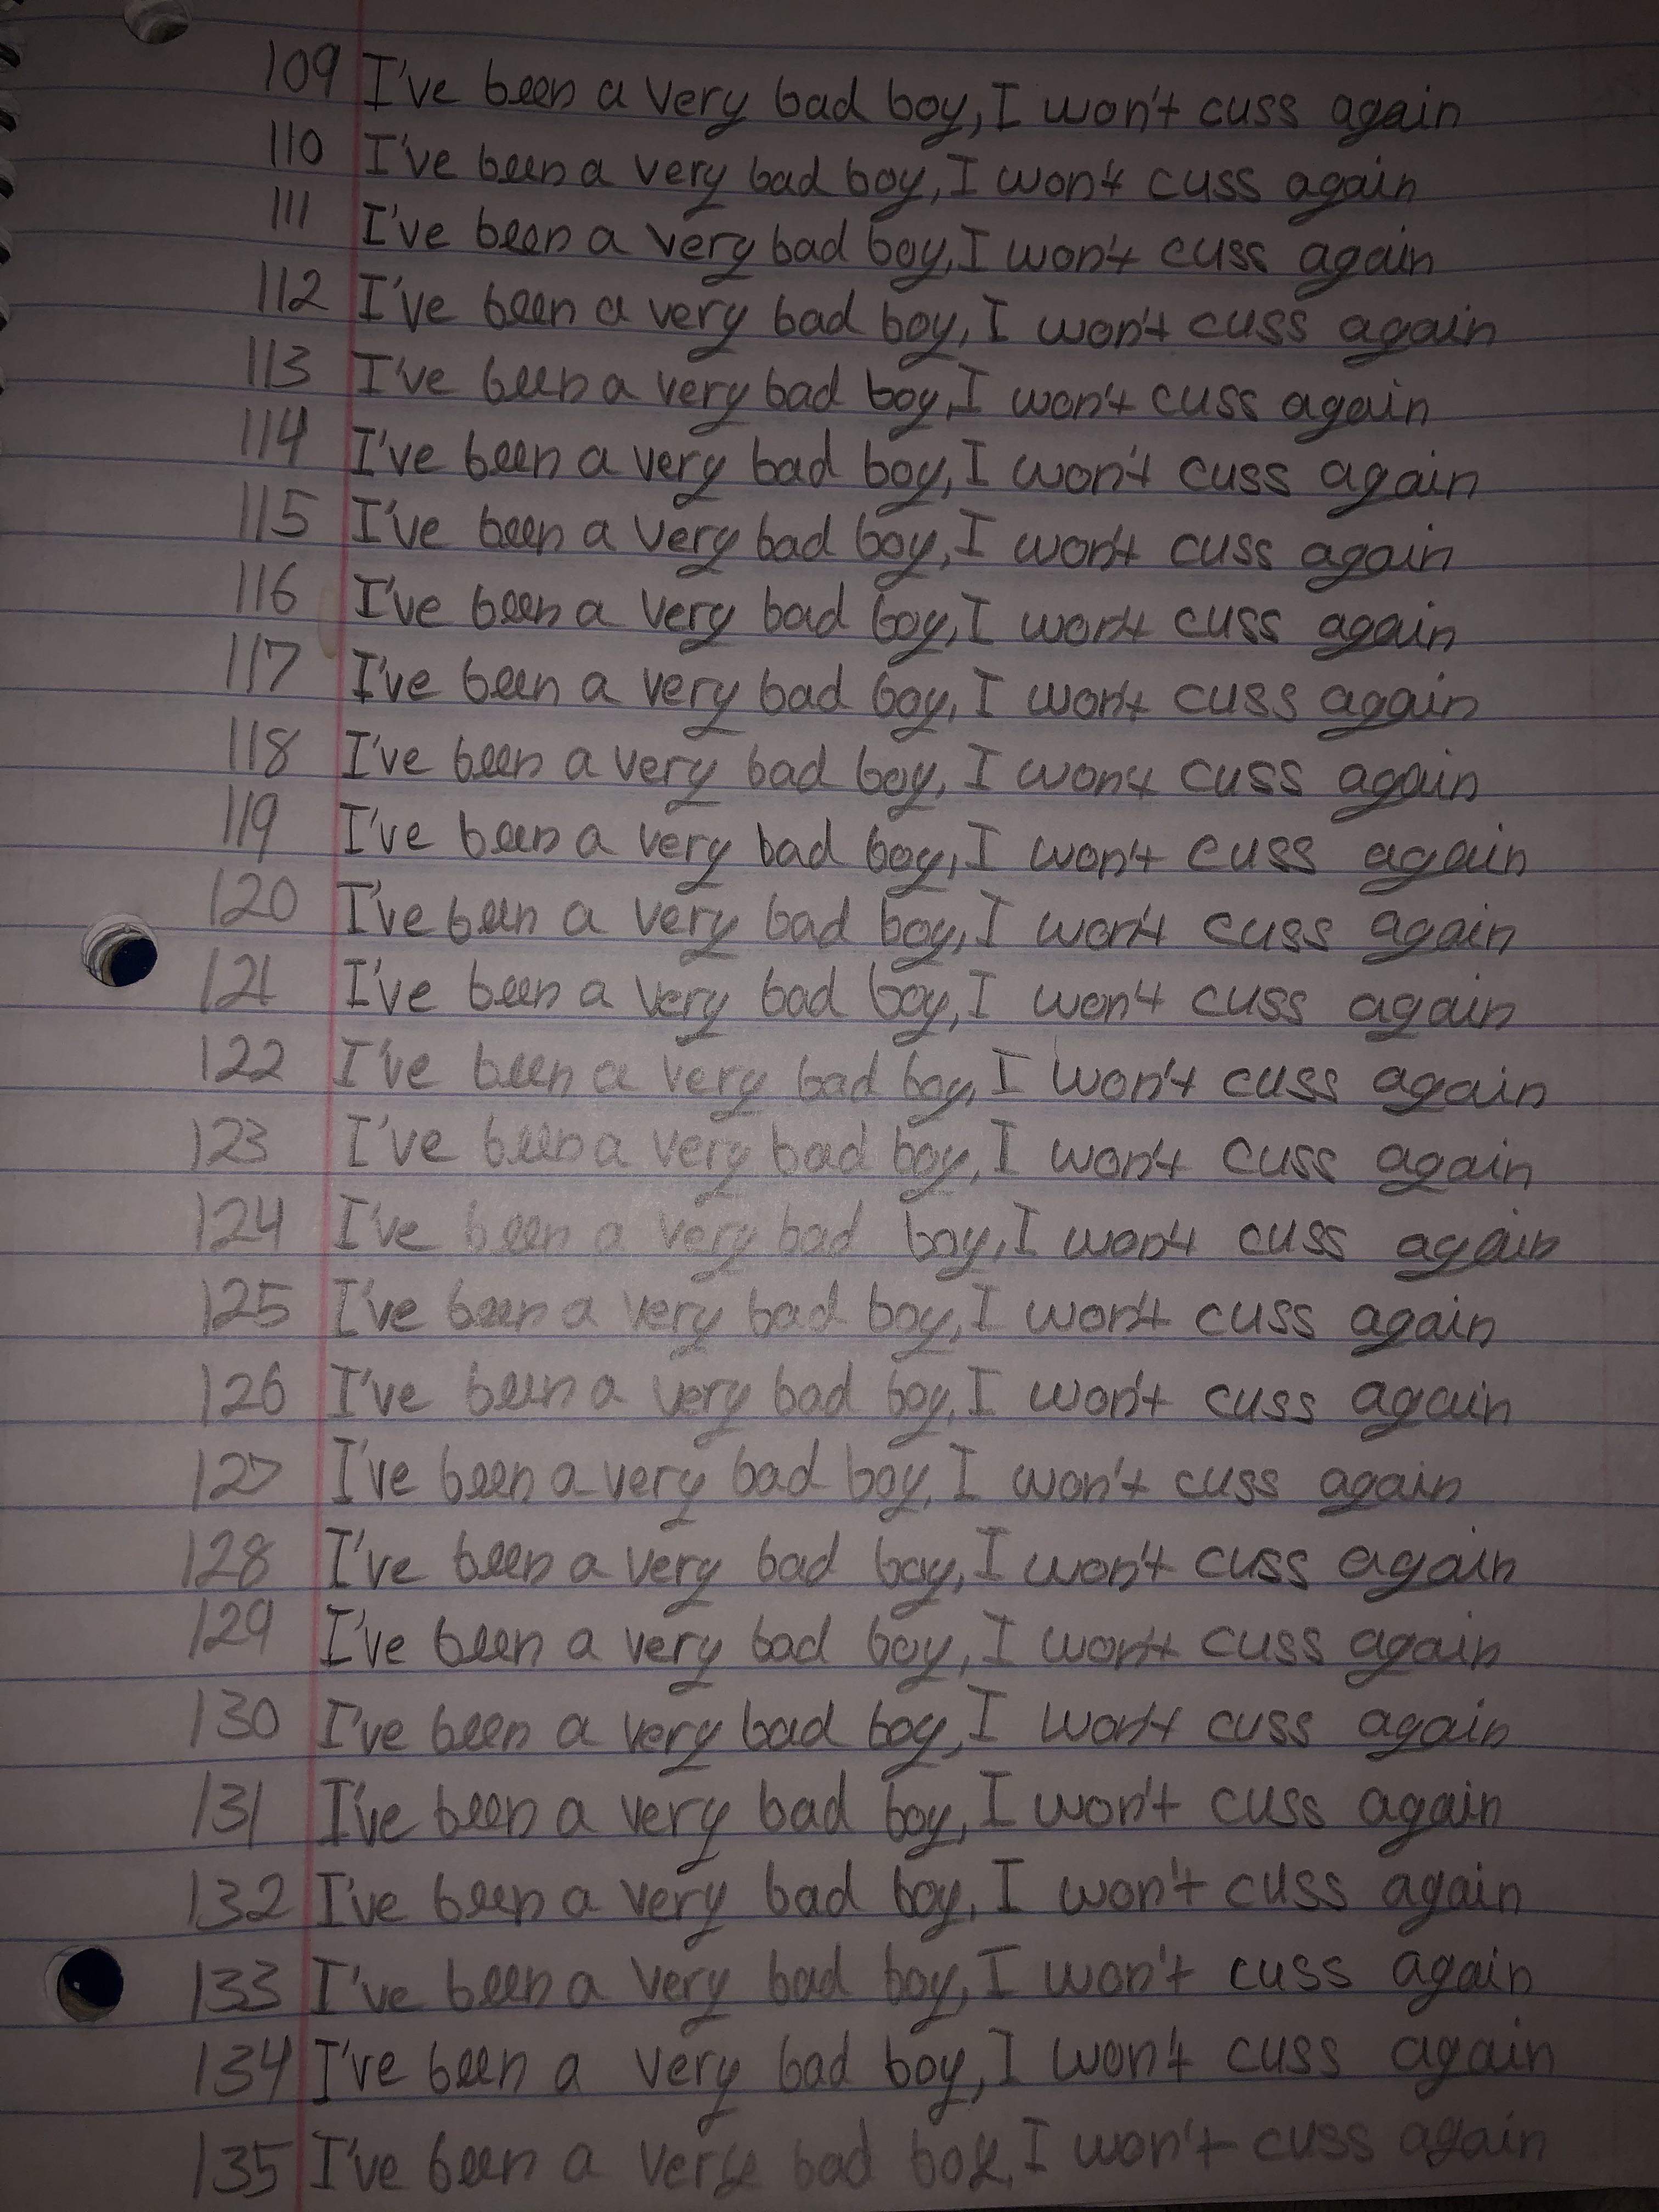 109 I've been a very bad boy, I won't cuss again
110 I've been a very bad boy, I won't cuss again
111 I've been a very bad boy, I won't cuss again
112 I've been a very bad boy, I won't cuss again
113 I've been a very bad boy, I won't cuss again
114 I've been a very bad boy, I won't cuss again
115 I've been a very bad boy, I won't cuss again
116 I've been a very bad boy, I won't cuss again
117 I've been a very bad boy, I won't cuss again
118 I've been a very bad boy, I won't cuss again
119 I've been a very bad boy, I won't cuss again
120 I've been a very bad boy, I won't cuss again
121 I've been a very bad boy, I won't cuss again
122 I've been a very bad boy, I won't cuss again
123 I've been a very bad boy, I won't cuss again
124 I've been a very bad boy, I won't cuss again
125 I've been a very bad boy, I won't cuss again
126 I've been a very bad boy, I won't cuss again
127 I've been a very bad boy, I won't cuss again
128 I've been a very bad boy, I won't cuss again
129 I've been a very bad boy, I won't cuss again
130 I've been a very bad boy, I won't cuss again
131 I've been a very bad boy, I won't cuss again
132 I've been a very bad boy, I won't cuss again
133 I've been a very bad boy, I won't cuss again
134 I've been a very bad boy, I won't cuss again
135 I've been a very bad boy, I won't cuss again